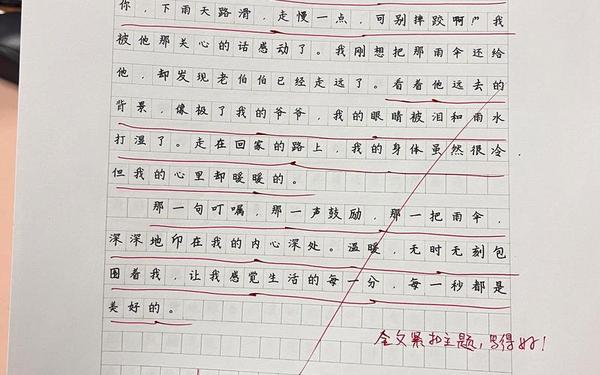 你，下雨天路滑，走慢一点，可别摔跤啊！"我
被他那关心的话感动了。我刚想把那雨伞还给
他，却发现老伯伯已经走远了。看着他远去的
背景，像极了我的爷爷，我的眼睛被泪和雨水
打湿了。走在回家的路上，我的身体虽然很冷，
但我的心里却暖暖的。
那一句叮嘱，那一声鼓励，那一把雨伞，
深深地印在我的内心深处。温暖，无时无刻包
围着我，让我感觉生活的每一分，每一秒都是
美好的。
全文紧扣主题，写得好！